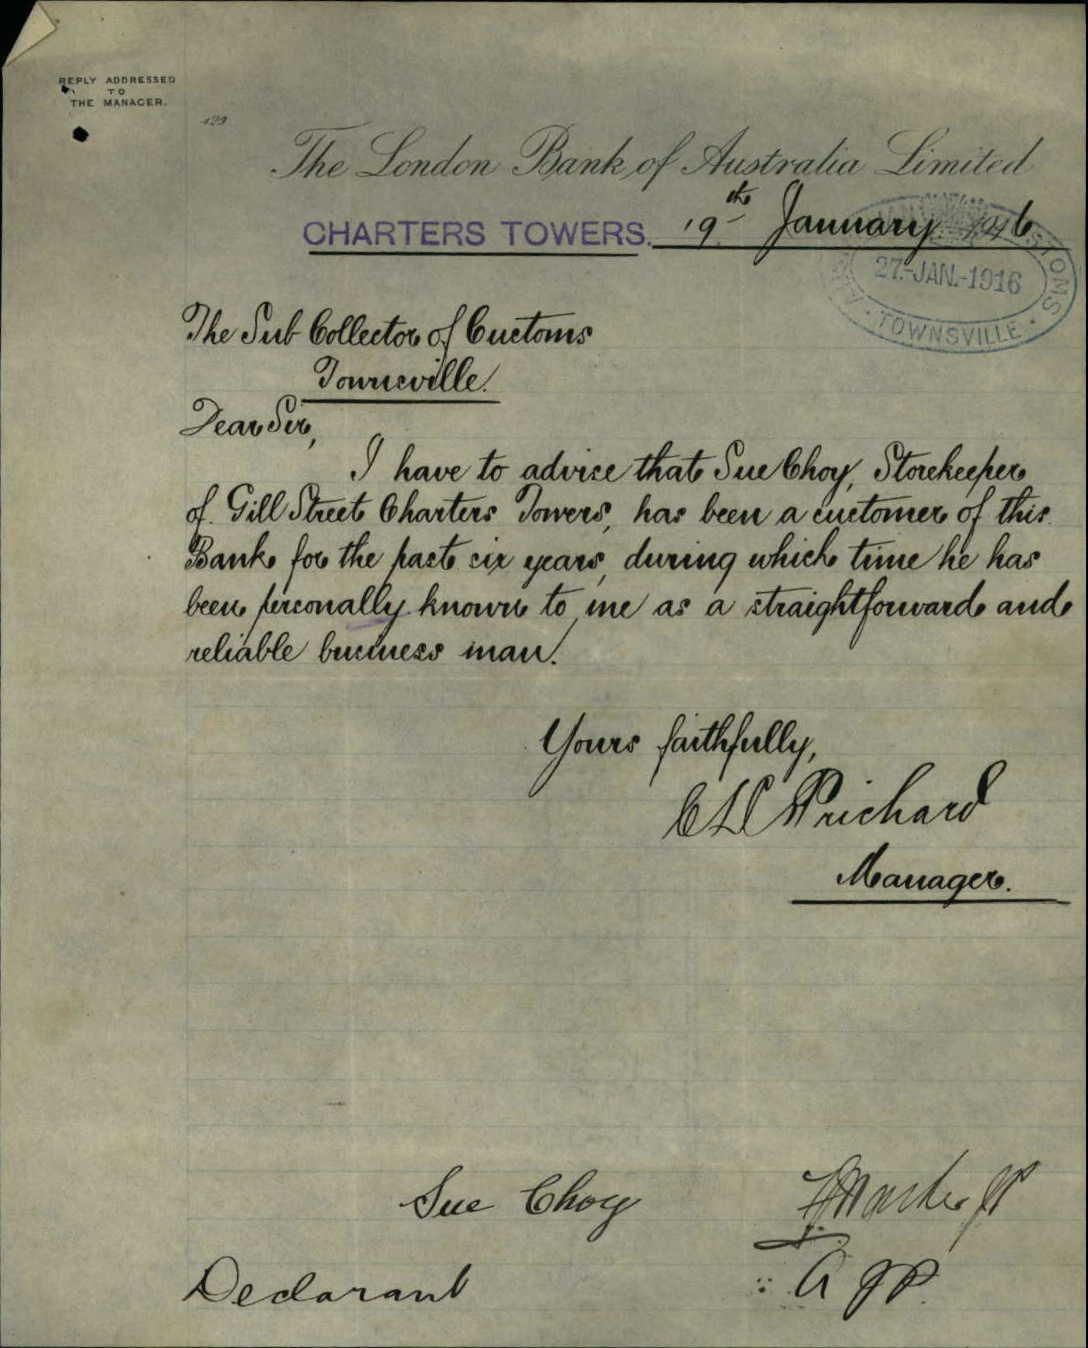 REPLY ADDRESSED
TO
THE MANAGER.
The London Bank of Australia Limited
CHARTERS TOWERS. 19th January 1916
27-JAN.-1916
TOWNSVILLE
The Sub Collector of Customs
Townsville.
Dear Sir,
I have to advise that Sue Choy, Storekeeper
of Gill Street Charters Towers, has been a customer of this
Bank for the past six years, during which time he has
been personally known to me as a straightforward and
reliable business man.
Yours faithfully,
Prichard
Manager.
Sue Choy
JP
Declarant
A JP.